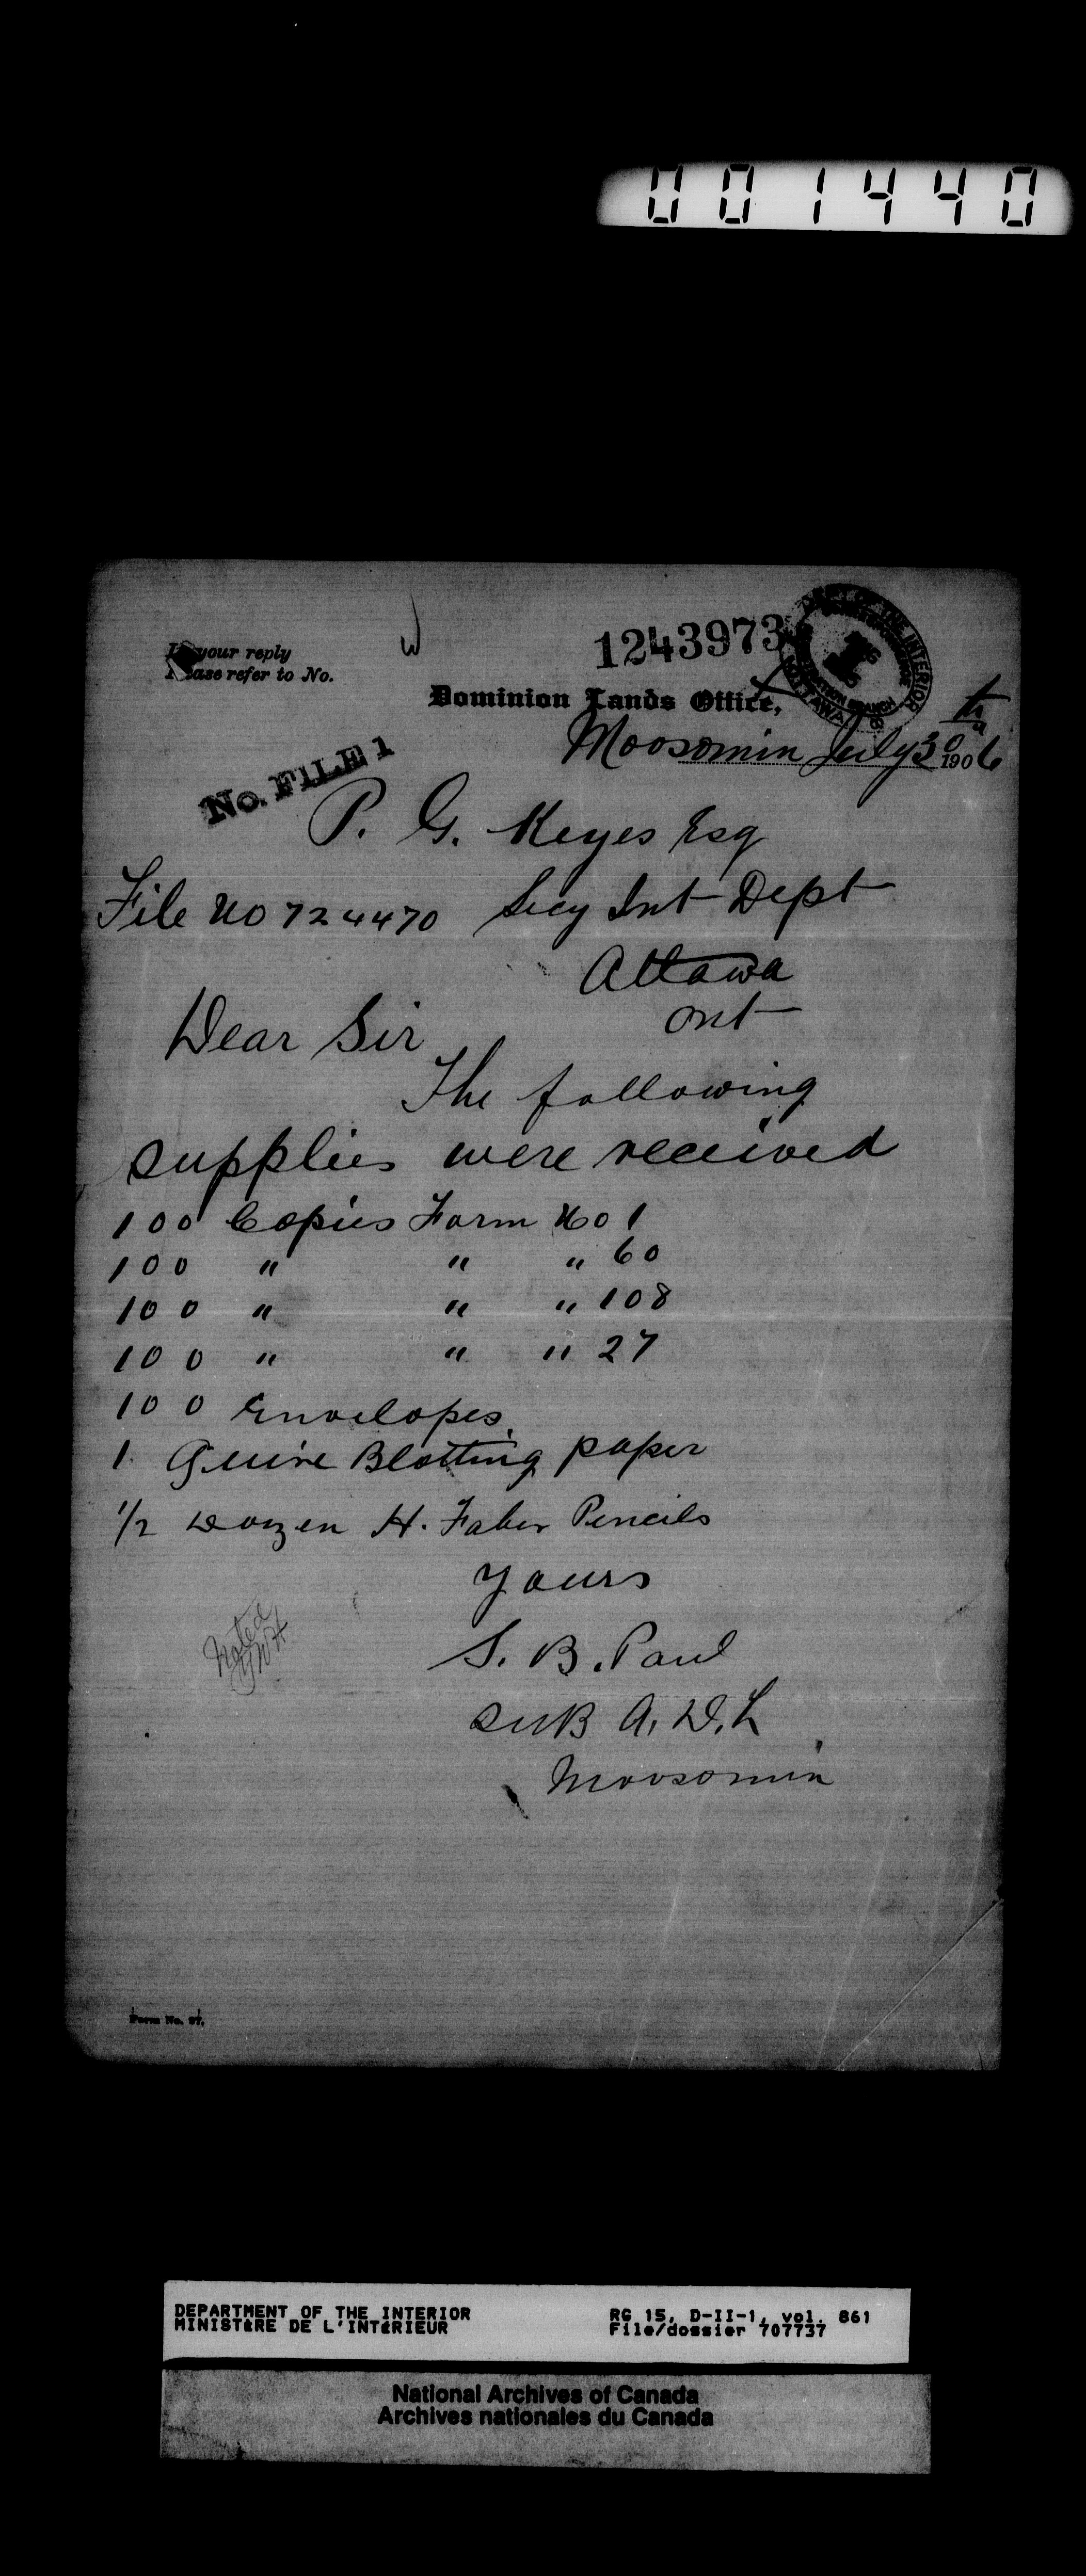 001440
In your reply
Please refer to No.
1243973
DEPT OF THE INTERIOR
OTTAWA
Dominion Lands Office,
Moosomin July 30th 1906
No. FILE 1
P. G. Keyes Esq
File No 724470 Secy Int Dept
Ottawa
Ont
Dear Sir
The following
supplies were received
100 Copies Form No 1
100 " " " 60
100 " " " 108
100 " " " 27
100 Envelopes
1 Quire Blotting paper
1/2 Dozen H. Faber Pencils
Yours
S. B. Paul
Sub A. D. L
Moosomin
Noted
Form No. 27.
DEPARTMENT OF THE INTERIOR
MINISTÈRE DE L'INTÉRIEUR
RG 15, D-II-1, vol. 861
File/dossier 707737
National Archives of Canada
Archives nationales du Canada